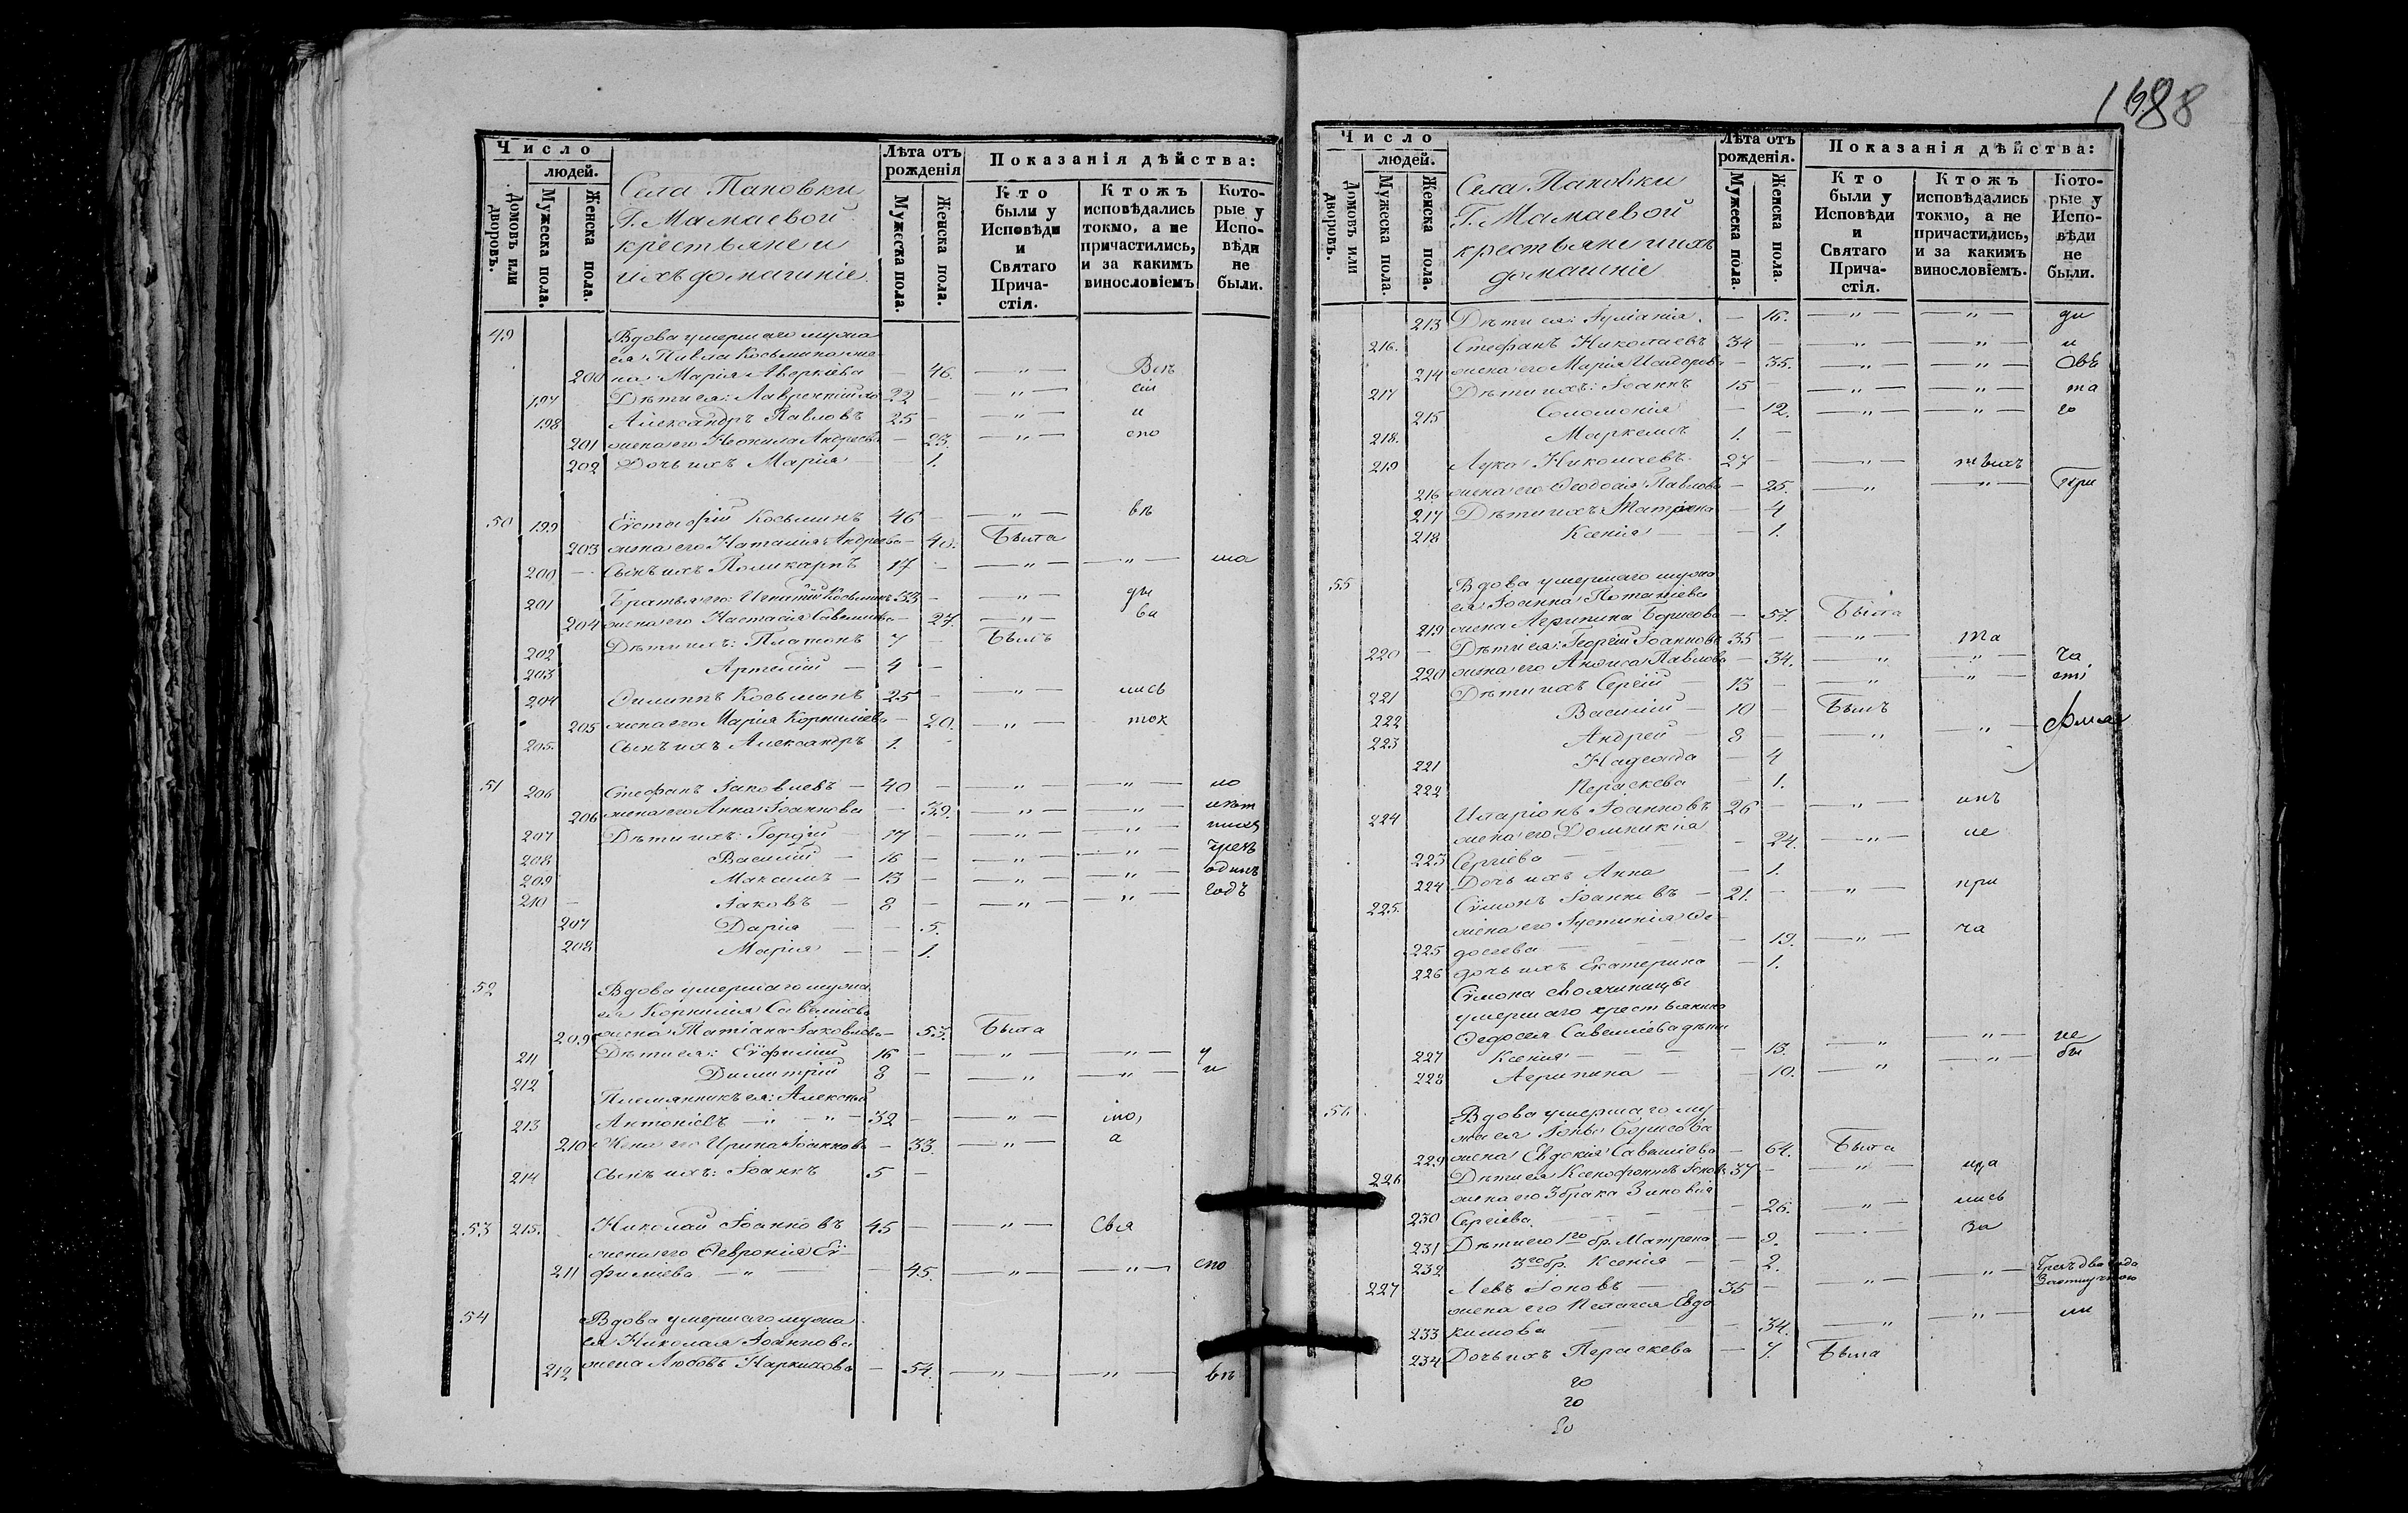 188
Число
людей.
Домовъ или дворовъ.
Мужеска пола.
Женска пола.
Села Пановки
Г. Мамаевой
крестьяне и
ихъ домашніе
Лѣта отъ рожденія
Мужеска пола.
Женска пола.
Показанія дѣйства:
Кто были у Исповѣди и Святаго Причастія.
Ктожъ исповѣдались токмо, а не причастились, и за какимъ винословіемъ
Которые у Исповѣди не были.
49 Вдова умершаго мужа
ея Павла Косьмина же
200 на Марія Аверкіева — 46. — " — Всѣ
197 Дѣти ея: Лаврентій 22 — — " — сіи
198 Александръ Павловъ 25 — — " — и
201 жена его Неонила Андреева — 23. — " — спо
202 Дочь ихъ Марія — 1.
50 199 Еѵстафій Косьминъ 46 — — " — вѣ
203 жена его Наталія Андреева — 40. Была
200 — Сынъ ихъ Поликарпъ 17 — — " — — " — ла
201 Братья его: Игнатій Косьминъ 33 — — " — ды
204 жена его Настасія Савельева — 27. — " — ва
202 Дѣти ихъ: Платонъ 7 — Былъ
203 Артемій — 4 —
204 Филиппъ Косьминъ 25 — — " — лись
205 жена его Марія Корниліева — 20. — " — ток
205. Сынъ ихъ Александръ 1. —
51 206 Стефанъ Іаковлевъ — 40 — — " — — " — по
206 жена его Анна Іоаннова — 39. — " — — " —
207 Дѣти ихъ: Гордій — 17 — — " — — " —
208 Василій — 16 — — " — — " — чрезъ
209 Максимъ — 13 — — " — — " — одинъ
210 — Іаковъ — 8 — — " — — " — годъ
207 Дарія — — 5.
208 Марія — — 1.
52 Вдова умершаго мужа
ея Корнилія Савельева
209 жена Татіана Іаковлева — 53. Была
211 Дѣти ея: Еѵфимій 16 — — " — — " — у
212 Димитрій 8 — — " — — " — и
Племянникъ ея: Алексѣй
213 Антоніевъ — " — " — 32 — — " — мо,
210 Жена его Ирина Іоаннова — 33. — " — а
214 Сынъ ихъ: Іоаннъ 5 —
53 215. Николай Іоанновъ 45 — — " — Свя
жена его Февронія Еѵ-
211 фиміева — " — — 45. — " — — " — спо
54 Вдова умершаго мужа
ея Николая Іоаннова
212 жена Любовь Наркизова — 54. — " — — " — вѣ
Число
людей.
Домовъ или дворовъ.
Мужеска пола.
Женска пола.
Села Пановки
Г. Мамаевой
крестьяне и ихъ
домашніе
Лѣта отъ рожденія.
Мужеска пола.
Женска пола.
Показанія дѣйства:
Кто были у Исповѣди и Святаго Причастія.
Ктожъ исповѣдались токмо, а не причастились, и за какимъ винословіемъ.
Которые у Исповѣди не были.
213 Дѣти ея: Іуліанія. — 16. — " — — " — ди
216. Стефанъ Николаевъ 34 — — " — — " — и
214 жена его Марія Исидорова — 35. — " — — " — Свя
217 Дѣти ихъ: Іоаннъ 15 — — " — — " — та
215 Соломонія — 12. — " — — " — го
218. Маркеллъ 1. —
219 Лука Николаевъ 27 — — " — тѣхъ
216 жена его Ѳеодосія Павлова — 25. — " — — " — При
217 Дѣти ихъ Матрона — 4
218 Ксенія — — — 1.
55 Вдова умершаго мужа
ея Іоанна Потапіева
219 жена Агрипина Борисова — 57. Была
220 — Дѣти ея: Георгій Іоанновъ 35 — — " — Та
220 жена его Анфиса Павлова — 34. — " — — " — ча
221 Дѣти ихъ Сергій — 13 — — " — — " — сті
222 Василій — 10 — Былъ
223 Андрей — 8 — — " — — " —
221 Надежда — 4
222 Параскева — 1.
224 Иларіонъ Іоанновъ 26 — — " — инъ
жена его Домникія
223 Сергіева — 24. — " — не
224 Дочь ихъ Анна — 1.
225. Сѵмонъ Іоанновъ — 21. — — " — при
жена его Іустинія Ѳе-
225 досеева — — 19. — " — ча
226 дочь ихъ Екатерина — 1.
Сѵмона своячиницы
умершаго крестьянина
Ѳедосея Савельева дѣти
227 Ксенія — — — 13. — " — — " — не
228 Агрипина — — 10. — " — — " — бы
56. Вдова умершаго му-
жа ея Іоны Борисова
229 жена Евдокія Савельева — 64. Была
226 Дѣти ея Ксенофонтъ Іоновъ 37 — — " — ща
жена его 3 брака Зиновія
230 Сергіева. — — — 26. — " — лись
231 Дѣти его 1го бр. Матрена — 9. — " — за
232 3го бр. Ксенія — — 2.
227 Левъ Іоновъ — 35 — — " — — " — Чрезъ два года
жена его Пелагея Евдо-
233 кимова — — 34. — " — — " — ли
234 Дочь ихъ Параскева — 7. Была
20
20
20